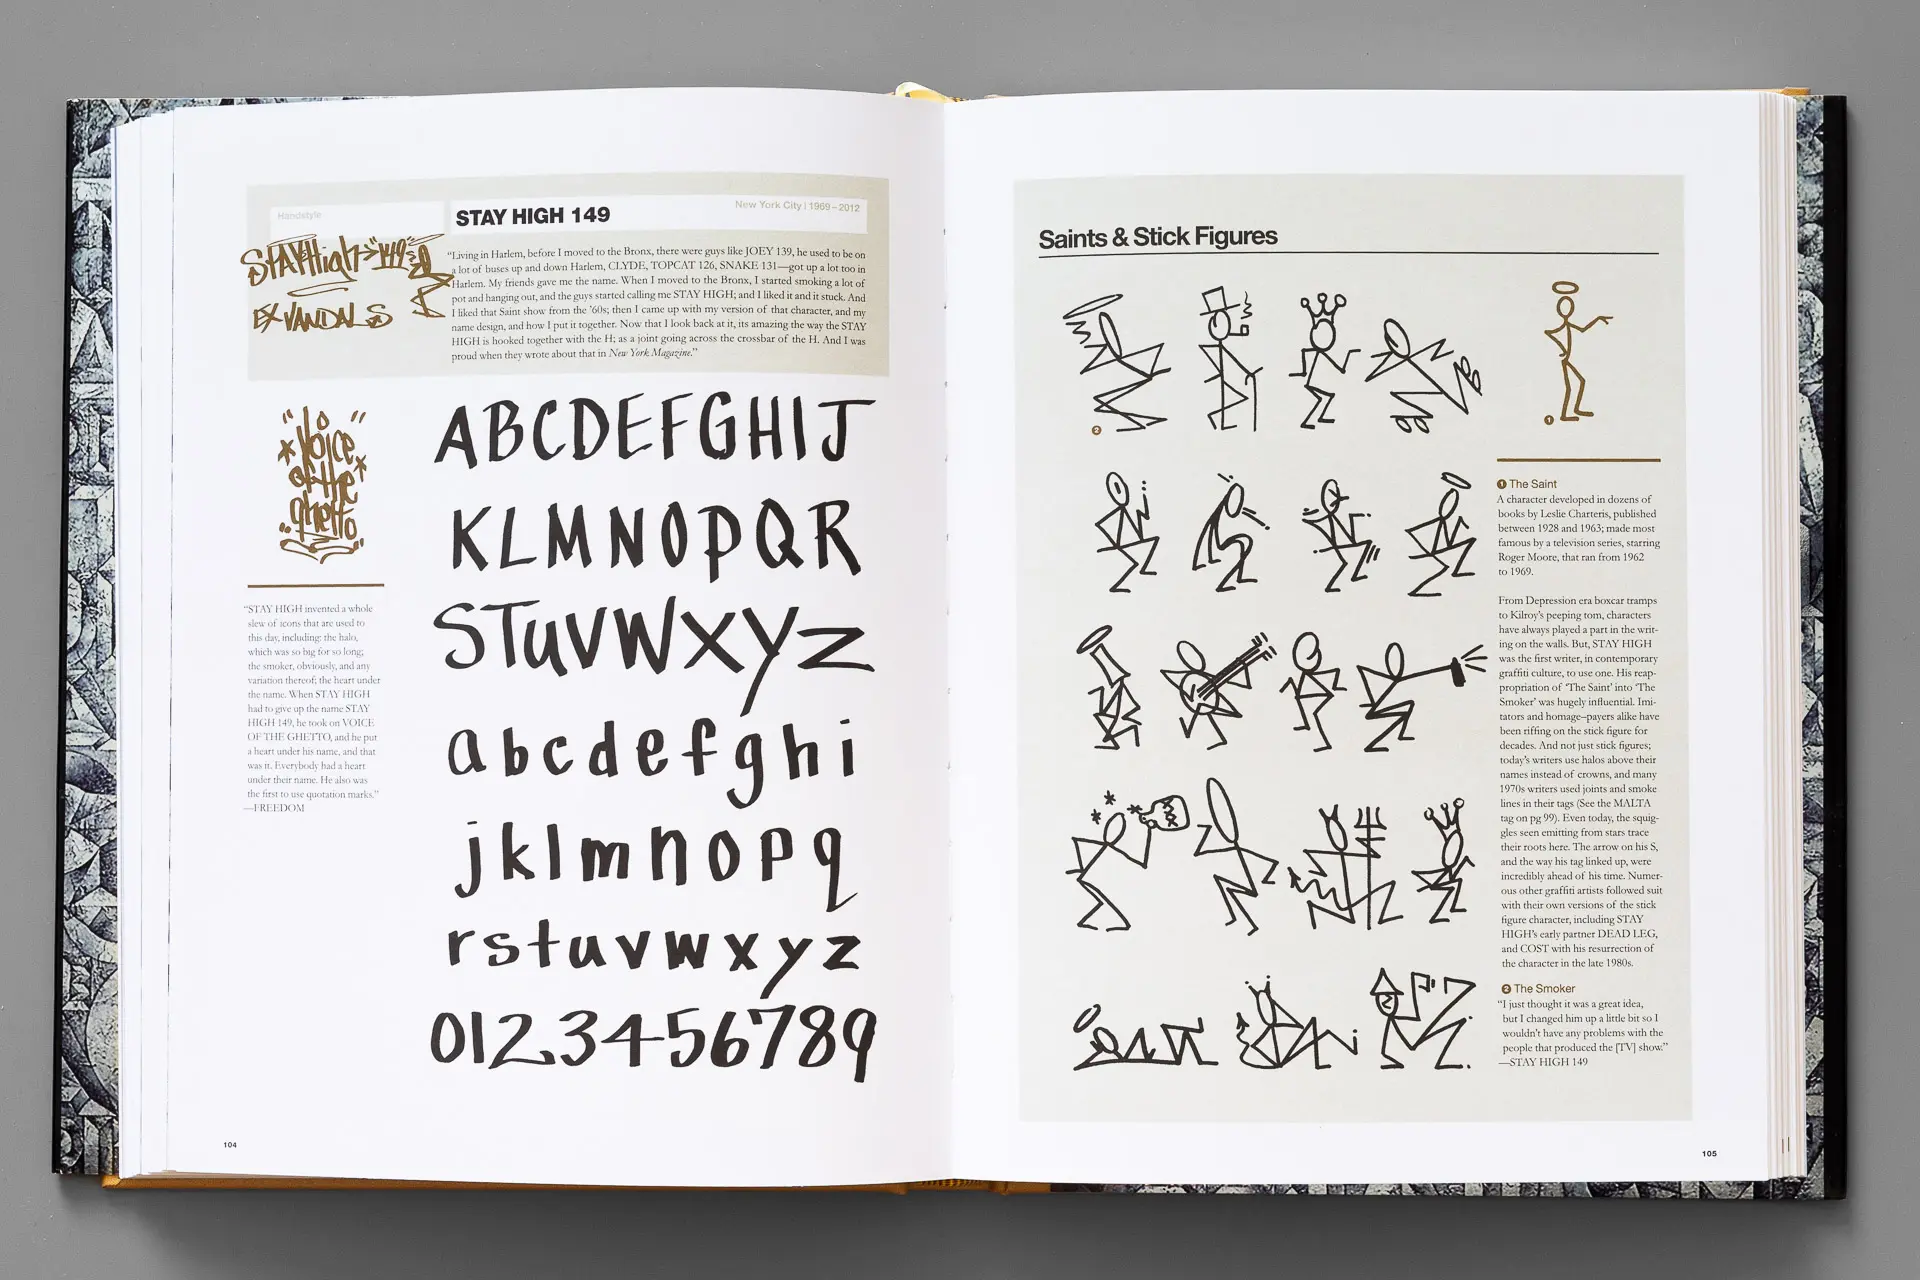 Handstyle
STAY HIGH 149
New York City | 1969–2012
STAYHigh "149"
EX VANDALS
“Living in Harlem, before I moved to the Bronx, there were guys like JOEY 139, he used to be on
a lot of buses up and down Harlem, CLYDE, TOPCAT 126, SNAKE 131—got up a lot too in
Harlem. My friends gave me the name. When I moved to the Bronx, I started smoking a lot of
pot and hanging out, and the guys started calling me STAY HIGH; and I liked it and it stuck. And
I liked that Saint show from the ’60s; then I came up with my version of that character, and my
name design, and how I put it together. Now that I look back at it, its amazing the way the STAY
HIGH is hooked together with the H; as a joint going across the crossbar of the H. And I was
proud when they wrote about that in New York Magazine.”
"Voice
of the
ghetto"
“STAY HIGH invented a whole
slew of icons that are used to
this day, including: the halo,
which was so big for so long;
the smoker, obviously, and any
variation thereof; the heart under
the name. When STAY HIGH
had to give up the name STAY
HIGH 149, he took on VOICE
OF THE GHETTO, and he put
a heart under his name, and that
was it. Everybody had a heart
under their name. He also was
the first to use quotation marks.”
—FREEDOM
ABCDEFGHIJ
KLMNOPQR
STUVWXYZ
abcdefghi
jklmnopq
rstuvwxyz
0123456789
104
Saints & Stick Figures
2
1
1 The Saint
A character developed in dozens of
books by Leslie Charteris, published
between 1928 and 1963; made most
famous by a television series, starring
Roger Moore, that ran from 1962
to 1969.
From Depression era boxcar tramps
to Kilroy’s peeping tom, characters
have always played a part in the writ-
ing on the walls. But, STAY HIGH
was the first writer, in contemporary
graffiti culture, to use one. His reap-
propriation of ‘The Saint’ into ‘The
Smoker’ was hugely influential. Imi-
tators and homage–payers alike have
been riffing on the stick figure for
decades. And not just stick figures;
today’s writers use halos above their
names instead of crowns, and many
1970s writers used joints and smoke
lines in their tags (See the MALTA
tag on pg 99). Even today, the squig-
gles seen emitting from stars trace
their roots here. The arrow on his S,
and the way his tag linked up, were
incredibly ahead of his time. Numer-
ous other graffiti artists followed suit
with their own versions of the stick
figure character, including STAY
HIGH’s early partner DEAD LEG,
and COST with his resurrection of
the character in the late 1980s.
2 The Smoker
“I just thought it was a great idea,
but I changed him up a little bit so I
wouldn’t have any problems with the
people that produced the [TV] show.”
—STAY HIGH 149
105